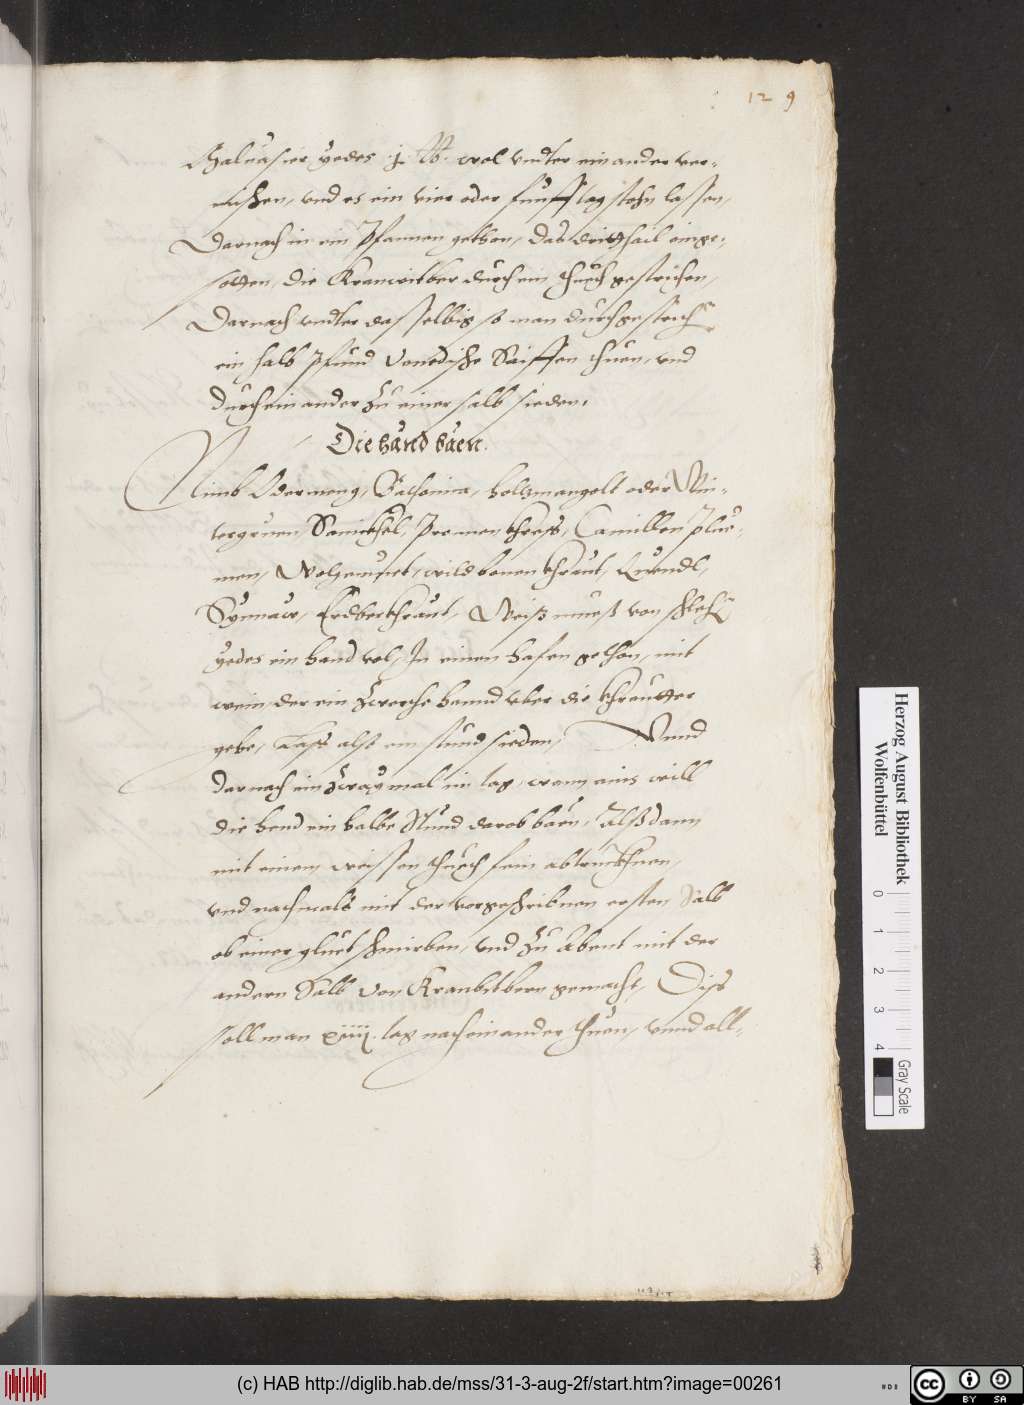 129
Maluasier yedes .j. lb. wol vndter ein ander ver-
mischen, vnd es ein vier oder fünff tag stehn lassen,
Darnach in ein Pfannen gethon, das dritthail einge-
sotten, die Kranwitber durch ein thuch gestrichen,
Darnach vndter dasselbig so man durchgestrichen
ein halb Pfund Venedische Saiffen thuen, vnd
durch ein ander zu einer salb sieden.
Die händ bäen.
Nimb Odermeng, Bathonica, holtzmangolt oder Win-
tergruen Sanickhel, Prunnen khress, Camillen plue-
men, Wolgemuet, wild bonen khraut, Quendl,
Synnaw, Erdberkhraut, Weiß muess von schlehen
yedes ein hand vol, In einen hafen gethon, mit
wein, der ein zwerche hannd vber die khreutter
gehe, Lass also ein stund sieden, Vnnd
darnach ein zway mal im tag, wann ains will
die hend ein halbe Stund darob bäen, Alsdann
mit einem weissen thuch fein abtruckhnen,
vnd nachmals mit der vorgeschribnen ersten Salb
ob einer gluet schmirben, vnd zu Abent mit der
andern Salb von Kranbitbern gemacht, Diss
soll man xiiij. tag nach einander thuen, vnnd all-
Herzog August Bibliothek
Wolfenbüttel
0 1 2 3 4
Gray Scale
(c) HAB http://diglib.hab.de/mss/31-3-aug-2f/start.htm?image=00261
cc BY SA